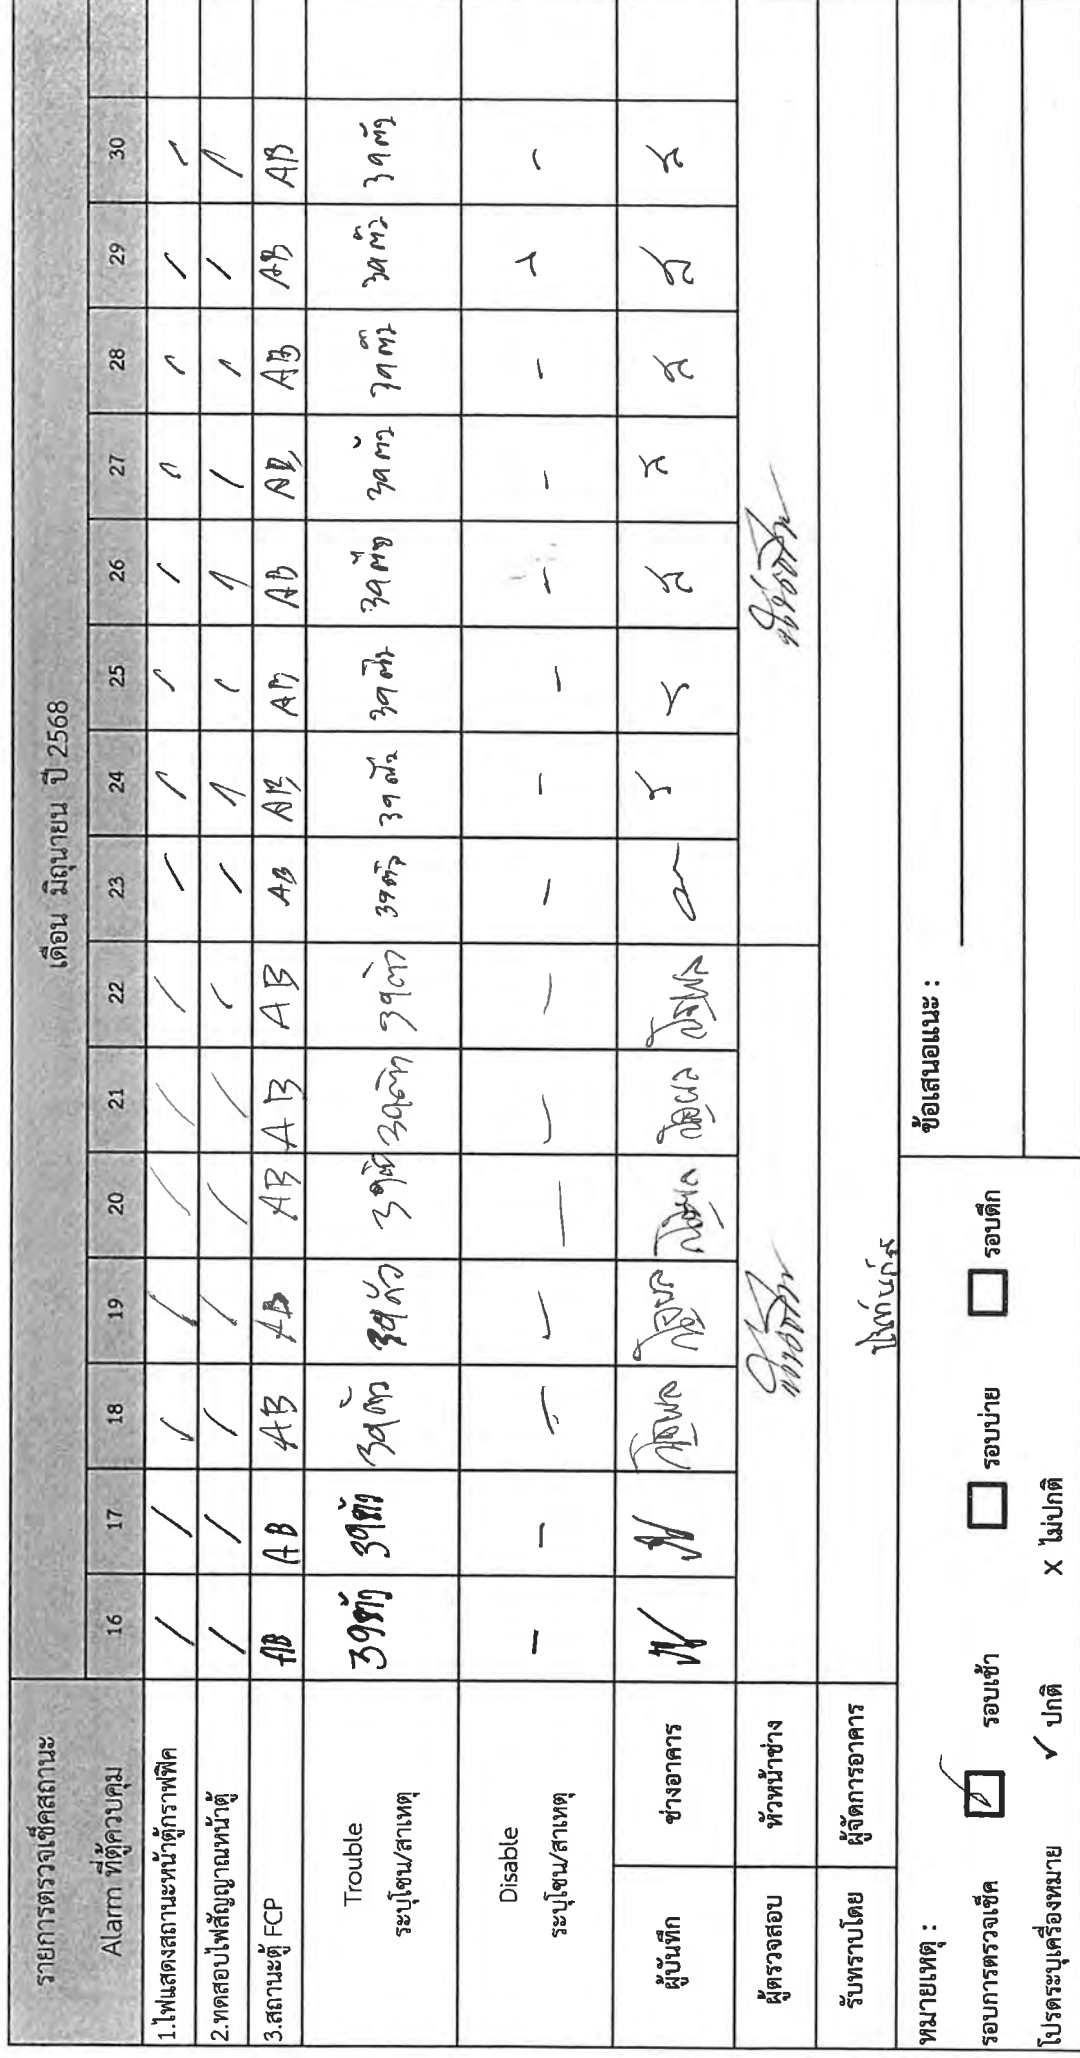 รายการตรวจเช็คสถานะ เดือน มิถุนายน ปี 2568
Alarm ที่ตู้ควบคุม 16 17 18 19 20 21 22 23 24 25 26 27 28 29 30
1.ไฟแสดงสถานะหน้าตู้กราฟฟิค / / / / / / / / / / / / / / /
2.ทดสอบไฟสัญญาณหน้าตู้ / / / / / / / / / / / / / / /
3.สถานะตู้ FCP AB AB AB AB AB AB AB AB AB AB AB AB AB AB AB
Trouble
ระบุโซน/สาเหตุ 39ตัว 39ตัว 39ตัว 39ตัว 39ตัว 39ตัว 39ตัว 39ตัว 39ตัว 39ตัว 39ตัว 39ตัว 39ตัว 39ตัว 39ตัว
Disable
ระบุโซน/สาเหตุ - - - - - - - - - - - - - - -
ผู้บันทึก ช่างอาคาร
ผู้ตรวจสอบ หัวหน้าช่าง
รับทราบโดย ผู้จัดการอาคาร
หมายเหตุ : ข้อเสนอแนะ :
รอบการตรวจเช็ค ☑ รอบเช้า ☐ รอบบ่าย ☐ รอบดึก
โปรดระบุเครื่องหมาย ✓ ปกติ x ไม่ปกติ